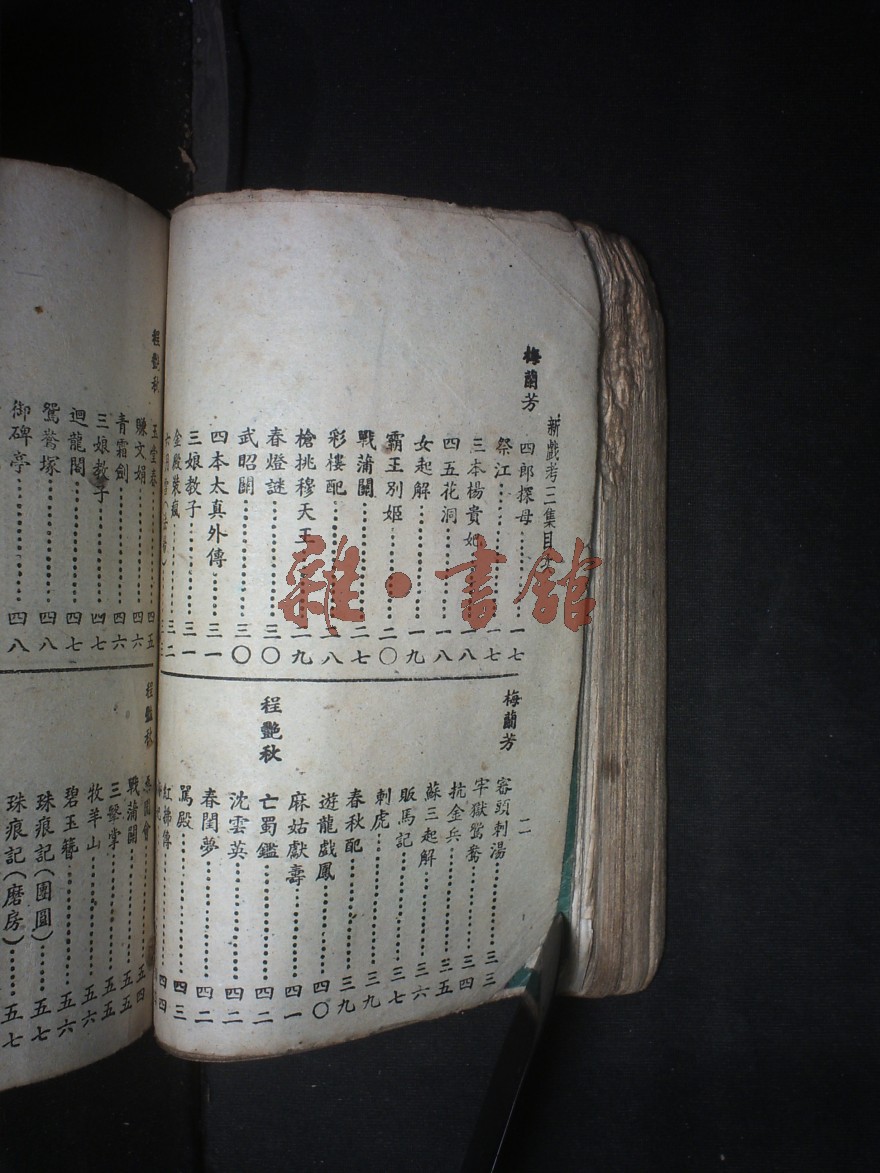 新戲考三集目
二
梅蘭芳
四郎探母……一七
祭江……一七
三本楊貴妃……一八
四五花洞……一八
女起解……一九
霸王別姬……二〇
戰蒲關……二七
彩樓配……二八
槍挑穆天王……二九
春燈謎……三〇
武昭關……三〇
四本太真外傳……三一
三娘教子……三一
金殿裝瘋……三二
梅蘭芳
審頭刺湯……三三
牢獄鴛鴦……三四
抗金兵……三五
蘇三起解……三六
販馬記……三七
刺虎……三九
春秋配……三九
遊龍戲鳳……四〇
麻姑獻壽……四一
程艷秋
亡蜀鑑……四二
沈雲英……四二
春閨夢……四二
罵殿……四三
紅拂傳……四四
程艷秋
玉堂春……四五
賺文娟……四六
青霜劍……四六
三娘教子……四七
迴龍閣……四七
鴛鴦塚……四八
御碑亭……四八
程艷秋
戰蒲關……五五
三擊掌……五五
牧羊山……五六
碧玉簪……五六
珠痕記(團圓)……五七
珠痕記(磨房)……五七
雜·書館